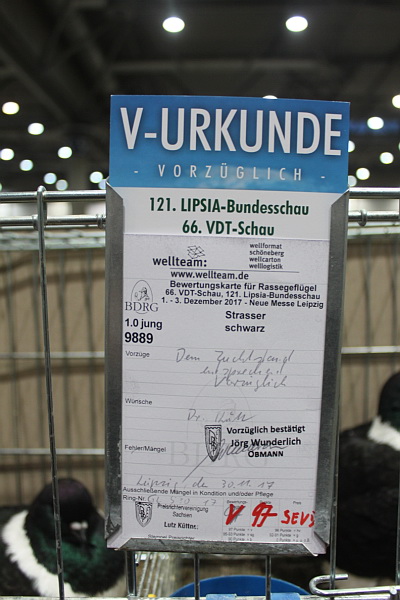 V-URKUNDE
- VORZÜGLICH -
121. LIPSIA-Bundesschau
66. VDT-Schau
wellteam: wellformat
schöneberg
wellcarton
welllogistik
www.wellteam.de
Bewertungskarte für Rassegeflügel
66. VDT-Schau, 121. Lipsia-Bundesschau
1. - 3. Dezember 2017 - Neue Messe Leipzig
BDRG
1.0 jung
Strasser
9889
schwarz
Vorzüge
Dem Zuchtstand
entsprechend
Vorzüglich
Wünsche
Vorzüglich bestätigt
Jörg Wunderlich
OBMANN
Fehler/Mängel
Leipzig, den 30.11.17
Ausschließende Mängel in Kondition und/oder Pflege
Ring-Nr.
Preisrichtervereinigung
Sachsen
V 97
Lutz Küttner